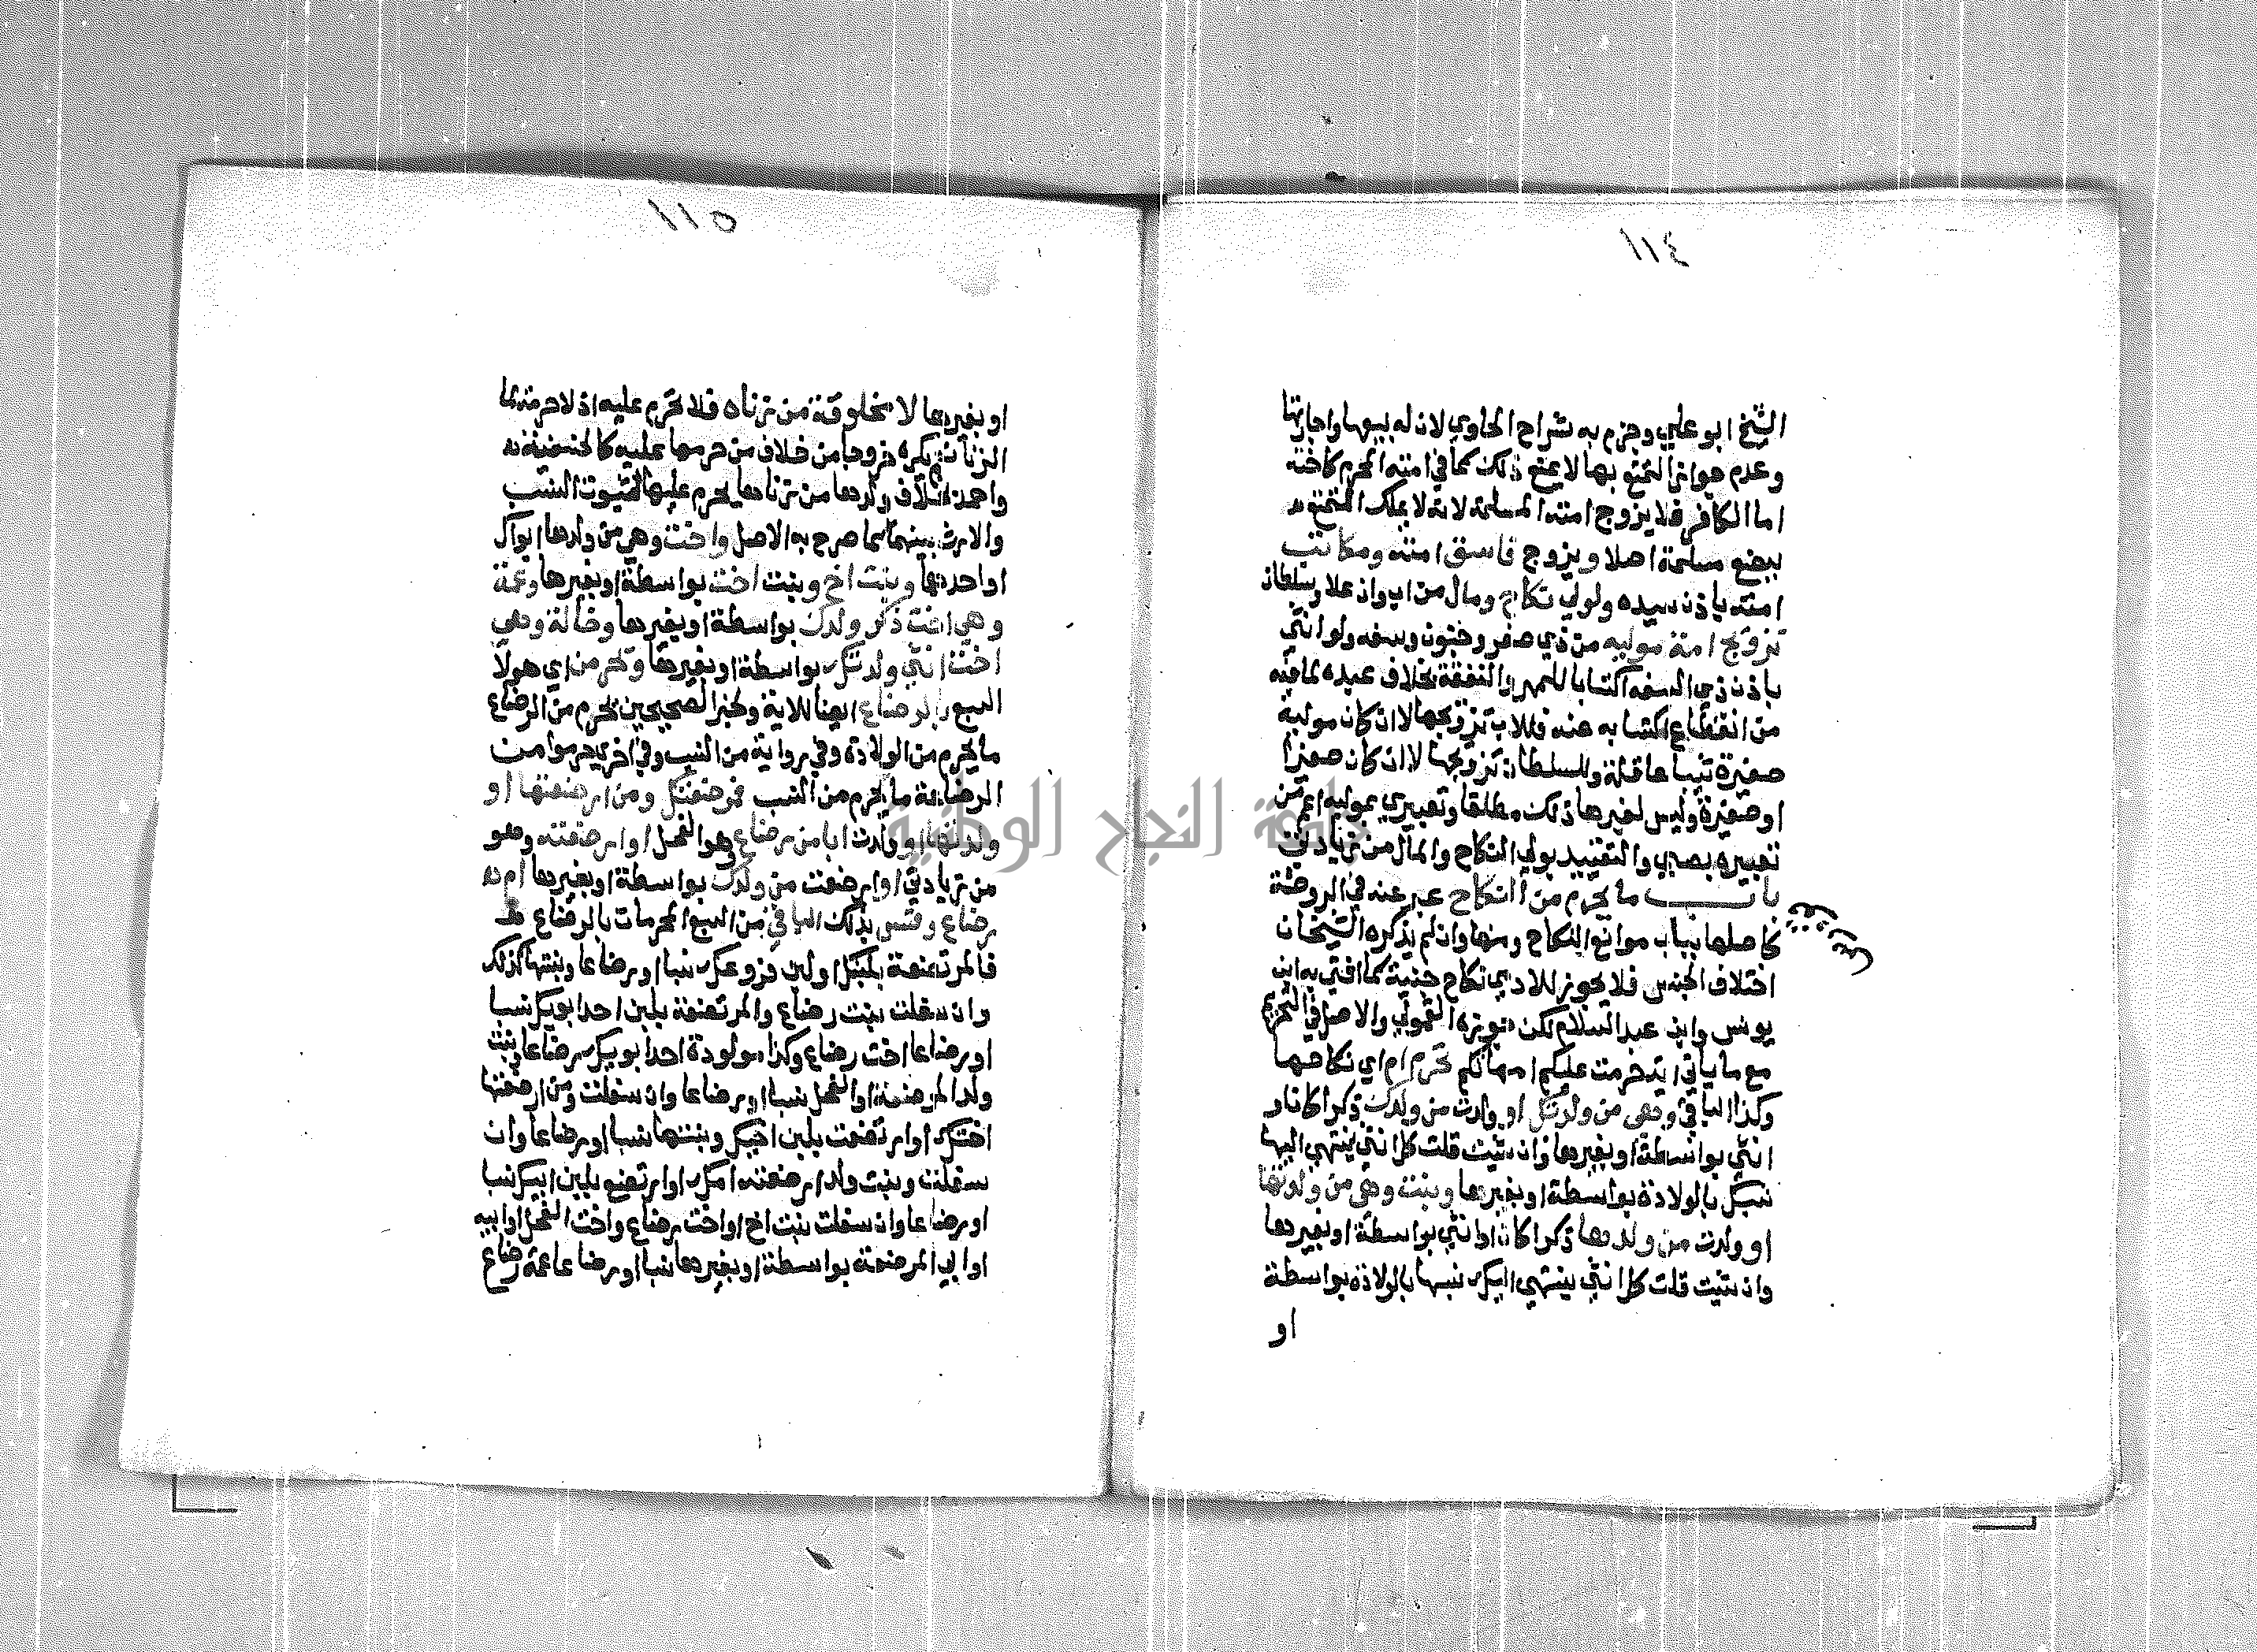 ١١٤
الشيخ ابو علي وجزم به شراح الحاوي لان له بيعها واجارتها
وعدم جواز التمتع بها لا يمنع ذلك كما في امته المحرم كاخته
اما الكافر فلا يزوج امته المسلمة لانه لا يملك التمتع به
ببضع مسلمة اصلا ويزوج فاسق امته ومكاتب
امته باذن سيده ولولي نكاح ومال من اب وان علا وسلطان
تزويج امة موليه من ذي صغر وجنون وسفه ولو انثي
باذن ذي السفه اكتسابا للمهر والنفقة بخلاف عبده لما فيه
من انقطاع اكتسابه عنه فللاب تزويجها لا ان كان مولية
صغيرة ثيبا عاقلة وللسلطان تزويجها لا ان كان صغيرا
او صغيرة وليس لغيرها ذلك مطلقا وتعبيري بموليه اعم من
تعبيره بصبي والتقييد بولي النكاح والمال من زيادتي
باب ما يحرم من النكاح عبر عنه في الروضة
كاصلها بباب موانع النكاح ومنها وان لم يذكره الشيخان
اختلاف الجنس فلا يجوز للادمي نكاح جنية كما افتي به ابن
يونس وابن عبد السلام لكن جوزه القمولي والاصل في التحريم
مع ما ياتي اية حرمت عليكم امهاتكم تحرم ام اي نكاحها
وكذا الباقي وهي من ولدتك او ولدت من ولدك ذكرا كان او
انثي بواسطة او بغيرها وان شيت قلت كل انثي ينتهي اليها
نسبك بالولادة بواسطة او بغيرها وبنت وهي من ولدتها
او ولدت من ولدها ذكرا كان او انثي بواسطة او بغيرها
وان شيت قلت كل انثي ينتهي اليك نسبها بالولادة بواسطة
او
١١٥
او بغيرها لا مخلوقة من زناه فلا تحرم عليه اذ لا حرمة لما
الزنا نعم يكره خروجا من خلاف من حرمها عليه كالحنفية
واحمد بخلاف ولدها من زناها يحرم عليها لثبوت النسب
والارث بينهما كما صرح به الاصل واخت وهي من ولدها ابواك
او احدهما وبنت اخ وبنت اخت بواسطة او بغيرها وعمة
وهي اخت ذكر ولدك بواسطة او بغيرها وخالة وهي
اخت انثي ولدتك بواسطة او بغيرها وتحرمن اي هولا
السبع بالرضاع ايضا للاية ولخبر الصحيحين يحرم من الرضاع
ما يحرم من الولادة وفي رواية من النسب وفي اخري حرموا من
الرضاعة ما يحرم من النسب فمرضعتك ومن ارضعتها او
ولدتها او ولدت ابا من رضاع وهو الفحل او ارضعته وهو
من زيادتي او ارضعت من ولدك بواسطة او بغيرها ام
رضاع وقس بذلك الباقي من السبع المحرمات بالرضاع
فالمرتضعة بلبنك او لبن فروعك نسبا او رضاعا وبنتها كذلك
وان سفلت بنت رضاع والمرتضعة بلبن احد ابويك نسبا
او رضاعا اخت رضاع وكذا مولودة احد ابويك رضاعا وبنت
ولد المرضعة او الفحل نسبا او رضاعا وان سفلت ومن ارضعتها
اختك او ارتضعت بلبن اخيك وبنتها نسبا او رضاعا وان
سفلت وبنت ولد ارضعته امك او ارتضع بلبن ابيك نسبا
او رضاعا وان سفلت بنت اخ او اخت رضاع واخت الفحل او ابيه
او ابي المرضعة بواسطة او بغيرها نسبا او رضاعا عمة رضاع
جامعة النجاح الوطنية